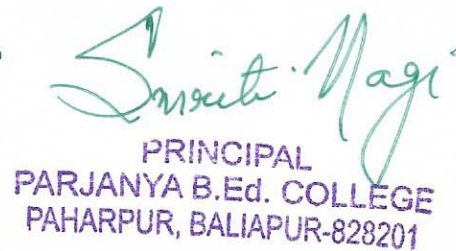 Smriti Nagi
PRINCIPAL
PARJANYA B.Ed. COLLEGE
PAHARPUR, BALIAPUR-828201